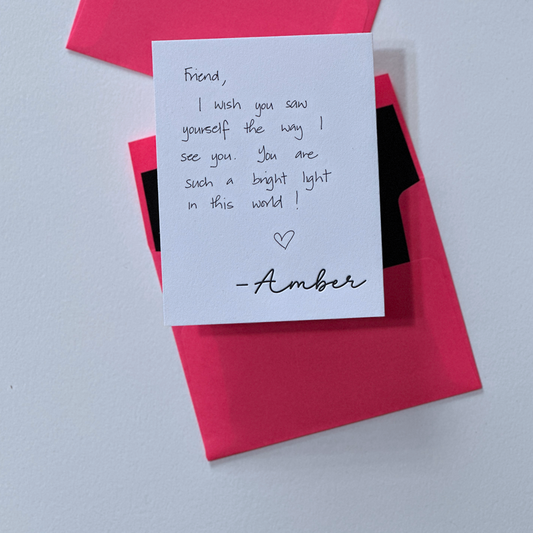 Friend,
I wish you saw
yourself the way I
see you. You are
such a bright light
in this world!
-Amber